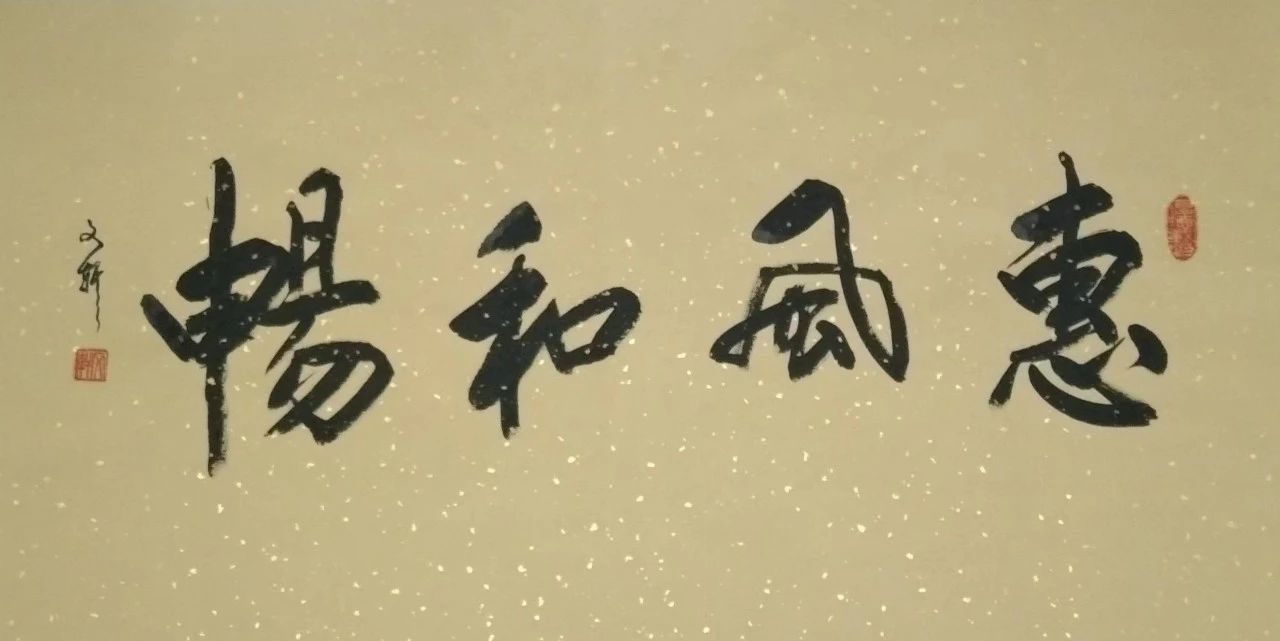 惠風和暢
文斌